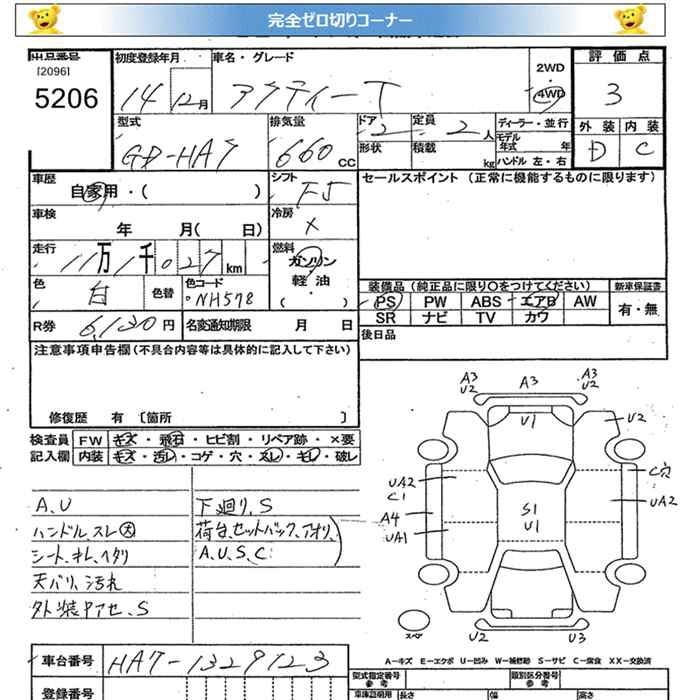 完全ゼロ切りコーナー
出品番号
[2096]
5206
初度登録年月
14 12月
車名・グレード
アクティートT
2WD
・
4WD
評価点
3
外装 内装
D C
型式
GD-HA7
排気量
660 CC
ドア 2
形状
定員 2 人
積載 kg
ディーラー・並行
モデル年式 年
ハンドル 左・右
車歴
自家用・( )
シフト
F5
セールスポイント (正常に機能するものに限ります)
車検
年 月( 日)
冷房
×
走行
11万1千027 km
燃料
ガソリン
軽油
・( )
色
白
色替
色コード
NH578
装備品 (純正品に限り○をつけてください)
PS PW ABS エアB AW
SR ナビ TV カワ
新車保証書
有・無
R券 6,130 円
名変通知期限 月 日
後日品
注意事項申告欄(不具合内容等は具体的に記入して下さい)
修復歴 有 [箇所 ]
検査員記入欄
FW キズ・飛石・ヒビ割・リペア跡・×要
内装 キズ・汚レ・コゲ・穴・スレ・キレ・破レ
A.U
ハンドル.スレ大
シート.キレ.ヘタリ
天バリ.汚れ
外装Pアセ.S
下廻り.S
荷台.セットバック.アオリ
A.U.S.C
A3
U2
A3
A3
U2
U1
U2
UA2
C1
A4
UA1
S1
U1
C穴
UA2
スペア
U2
U3
A-キズ E-エクボ U-凹み W-補修跡 S-サビ C-腐食 XX-交換済
車台番号
HA7-1329123
登録番号
型式指定番号
参考
類別区分番号
参考
車庫証明用
長さ
幅
高さ